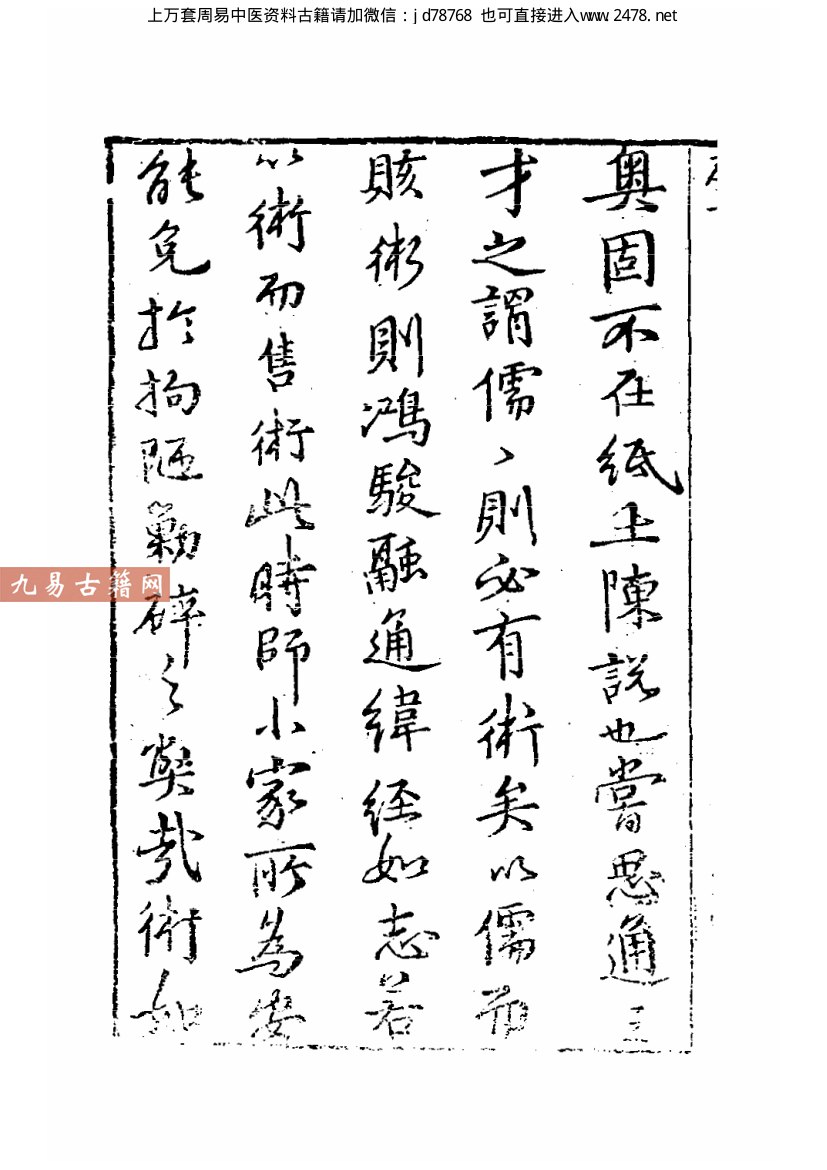 上万套周易中医资料古籍请加微信：jd78768 也可直接进入www.2478.net
奥固不在纸上陳説也嘗思通三
才之謂儒〻則必有術矣以儒而
賅術則鴻駿融通緯経如志若
以術而售術此時師小家所為安
能免於拘陋勦碎之奥哉術如
九易古籍网